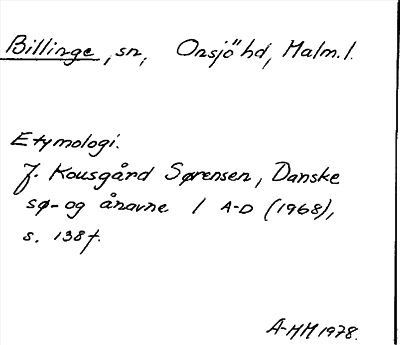 Billinge, sn, Onsjö hd, Malm. l.
Etymologi:
J. Kousgård Sørensen, Danske
sø- og ånavne 1 A-D (1968),
s. 138f.
A-MM 1978.